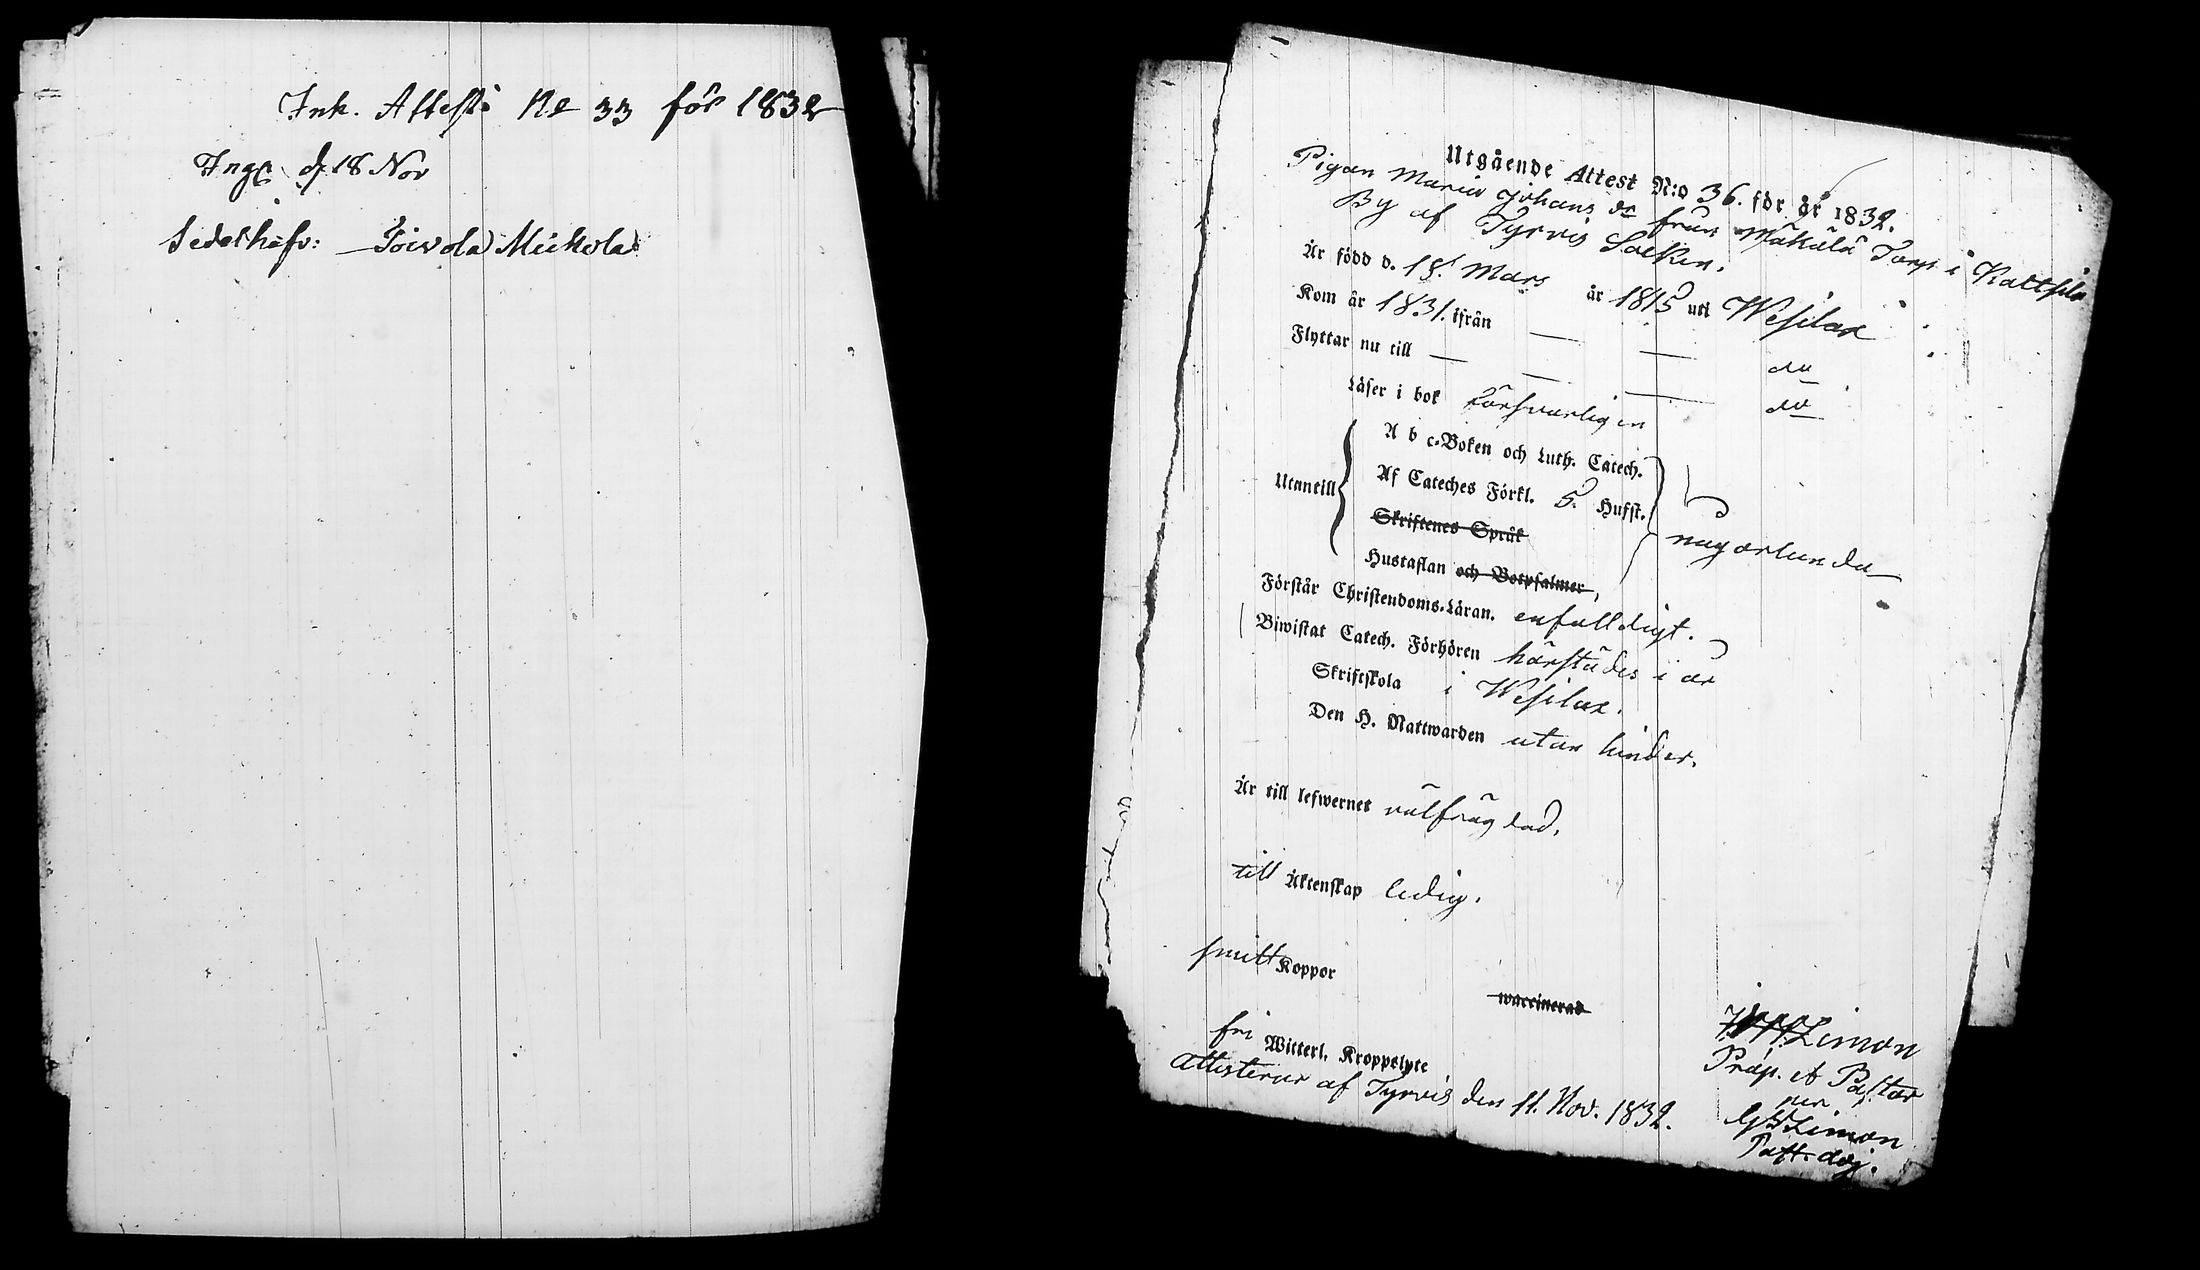 Ink. Attest: No 33 för 1832
Ingc d. 18 Nov
Sedelhafv: Toivola Mickola
Utgående Attest N:o 36. för år 1832.
Pigan Maria Johans dr från Mäkälä Torp i Kallsila
By af Tyrvis Socken.
Är född d. 18. Mars år 1815 uti Wesilax
Kom år 1831. ifrån — — do
Flyttar nu till — — — do
Läser i bok försvarligen
Utantill A b c-Boken och Luth. Catech.
Af Cateches Förkl. 5. Hufst.
Skriftenes Språk
nögorlunda
Hustaflan och Botpsalmer,
Förstår Christendoms-Läran. enfalldigt.
Biwistat Catech. Förhören härstädes i år
Skriftskola i Wesilax.
Den H. Nattwarden utan hinder.
Är till lefwernet välfrägdad.
till Äktenskap ledig.
Koppor
waccinerad
fri Witterl. Kroppslyte
Attesterar af Tyrvis den 11. Nov. 1832.
Limon
Præp. et Pastor
per
Limon
Past. adj.